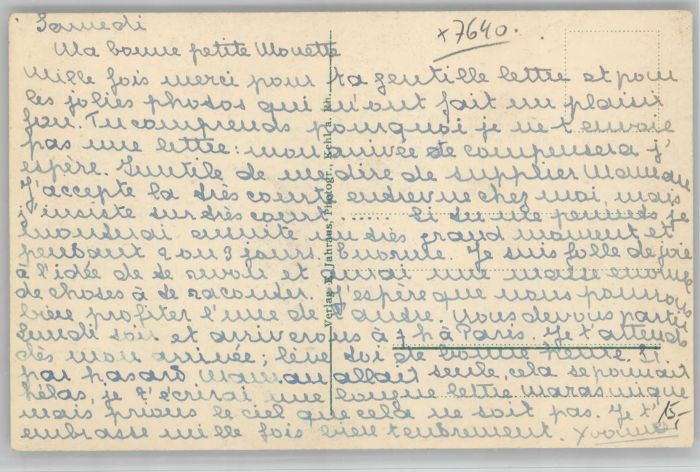 Samedi
x7640.
Ma bonne petite Mouette
Mille fois merci pour ta gentille lettre et pour
les jolies photos qui m'ont fait un plaisir
fou. Tu comprends pourquoi je ne t'envoie
pas une lettre: mon arrivée te compensera j'
espère. Inutile de me dire de supplier Maman
J'accepte la très courte entrevue chez moi, mais
j'insiste sur très court ..... Si tu me permets, je
viendrai ensuite un très grand moment et
pendant 2 ou 3 jours Enorme. Je suis folle de joie
à l'idée de te revoir et j'aurai une masse énorme
de choses à te raconter. J'espère que nous pourrons
bien profiter l'une de l'autre. Nous devons partir
Lundi soir et arriverons à 7h à Paris. Je t'attends
dès mon arrivée; lève toi de bonne heure. Si
par hasard Maman allait seule, cela se pourrait
hélas, je t'écrirai une longue lettre
mais prions le ciel que cela ne soit pas. Je t'
embrasse mille fois bien tendrement. Yvonne
15,-
Verlag Jahraus, Photogr. Kehl a. Rh.